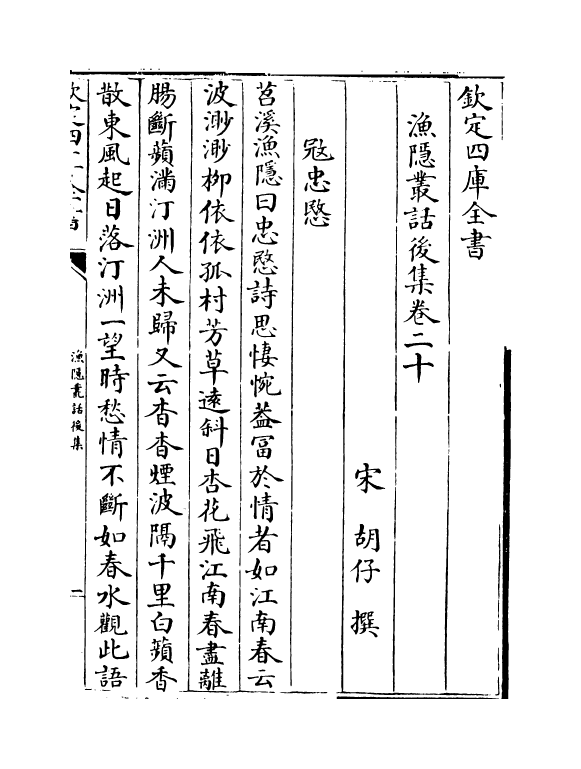 欽定四庫全書
漁隱叢話後集卷二十
宋 胡仔 撰
寇忠愍
苕溪漁隱曰忠愍詩思悽惋葢冨於情者如江南春云
波渺渺柳依依孤村芳草逺斜日杏花飛江南春盡離
腸斷蘋滿汀洲人未歸又云杳杳煙波隔千里白蘋香
散東風起日落汀洲一望時愁情不斷如春水觀此語
漁隱叢話後集